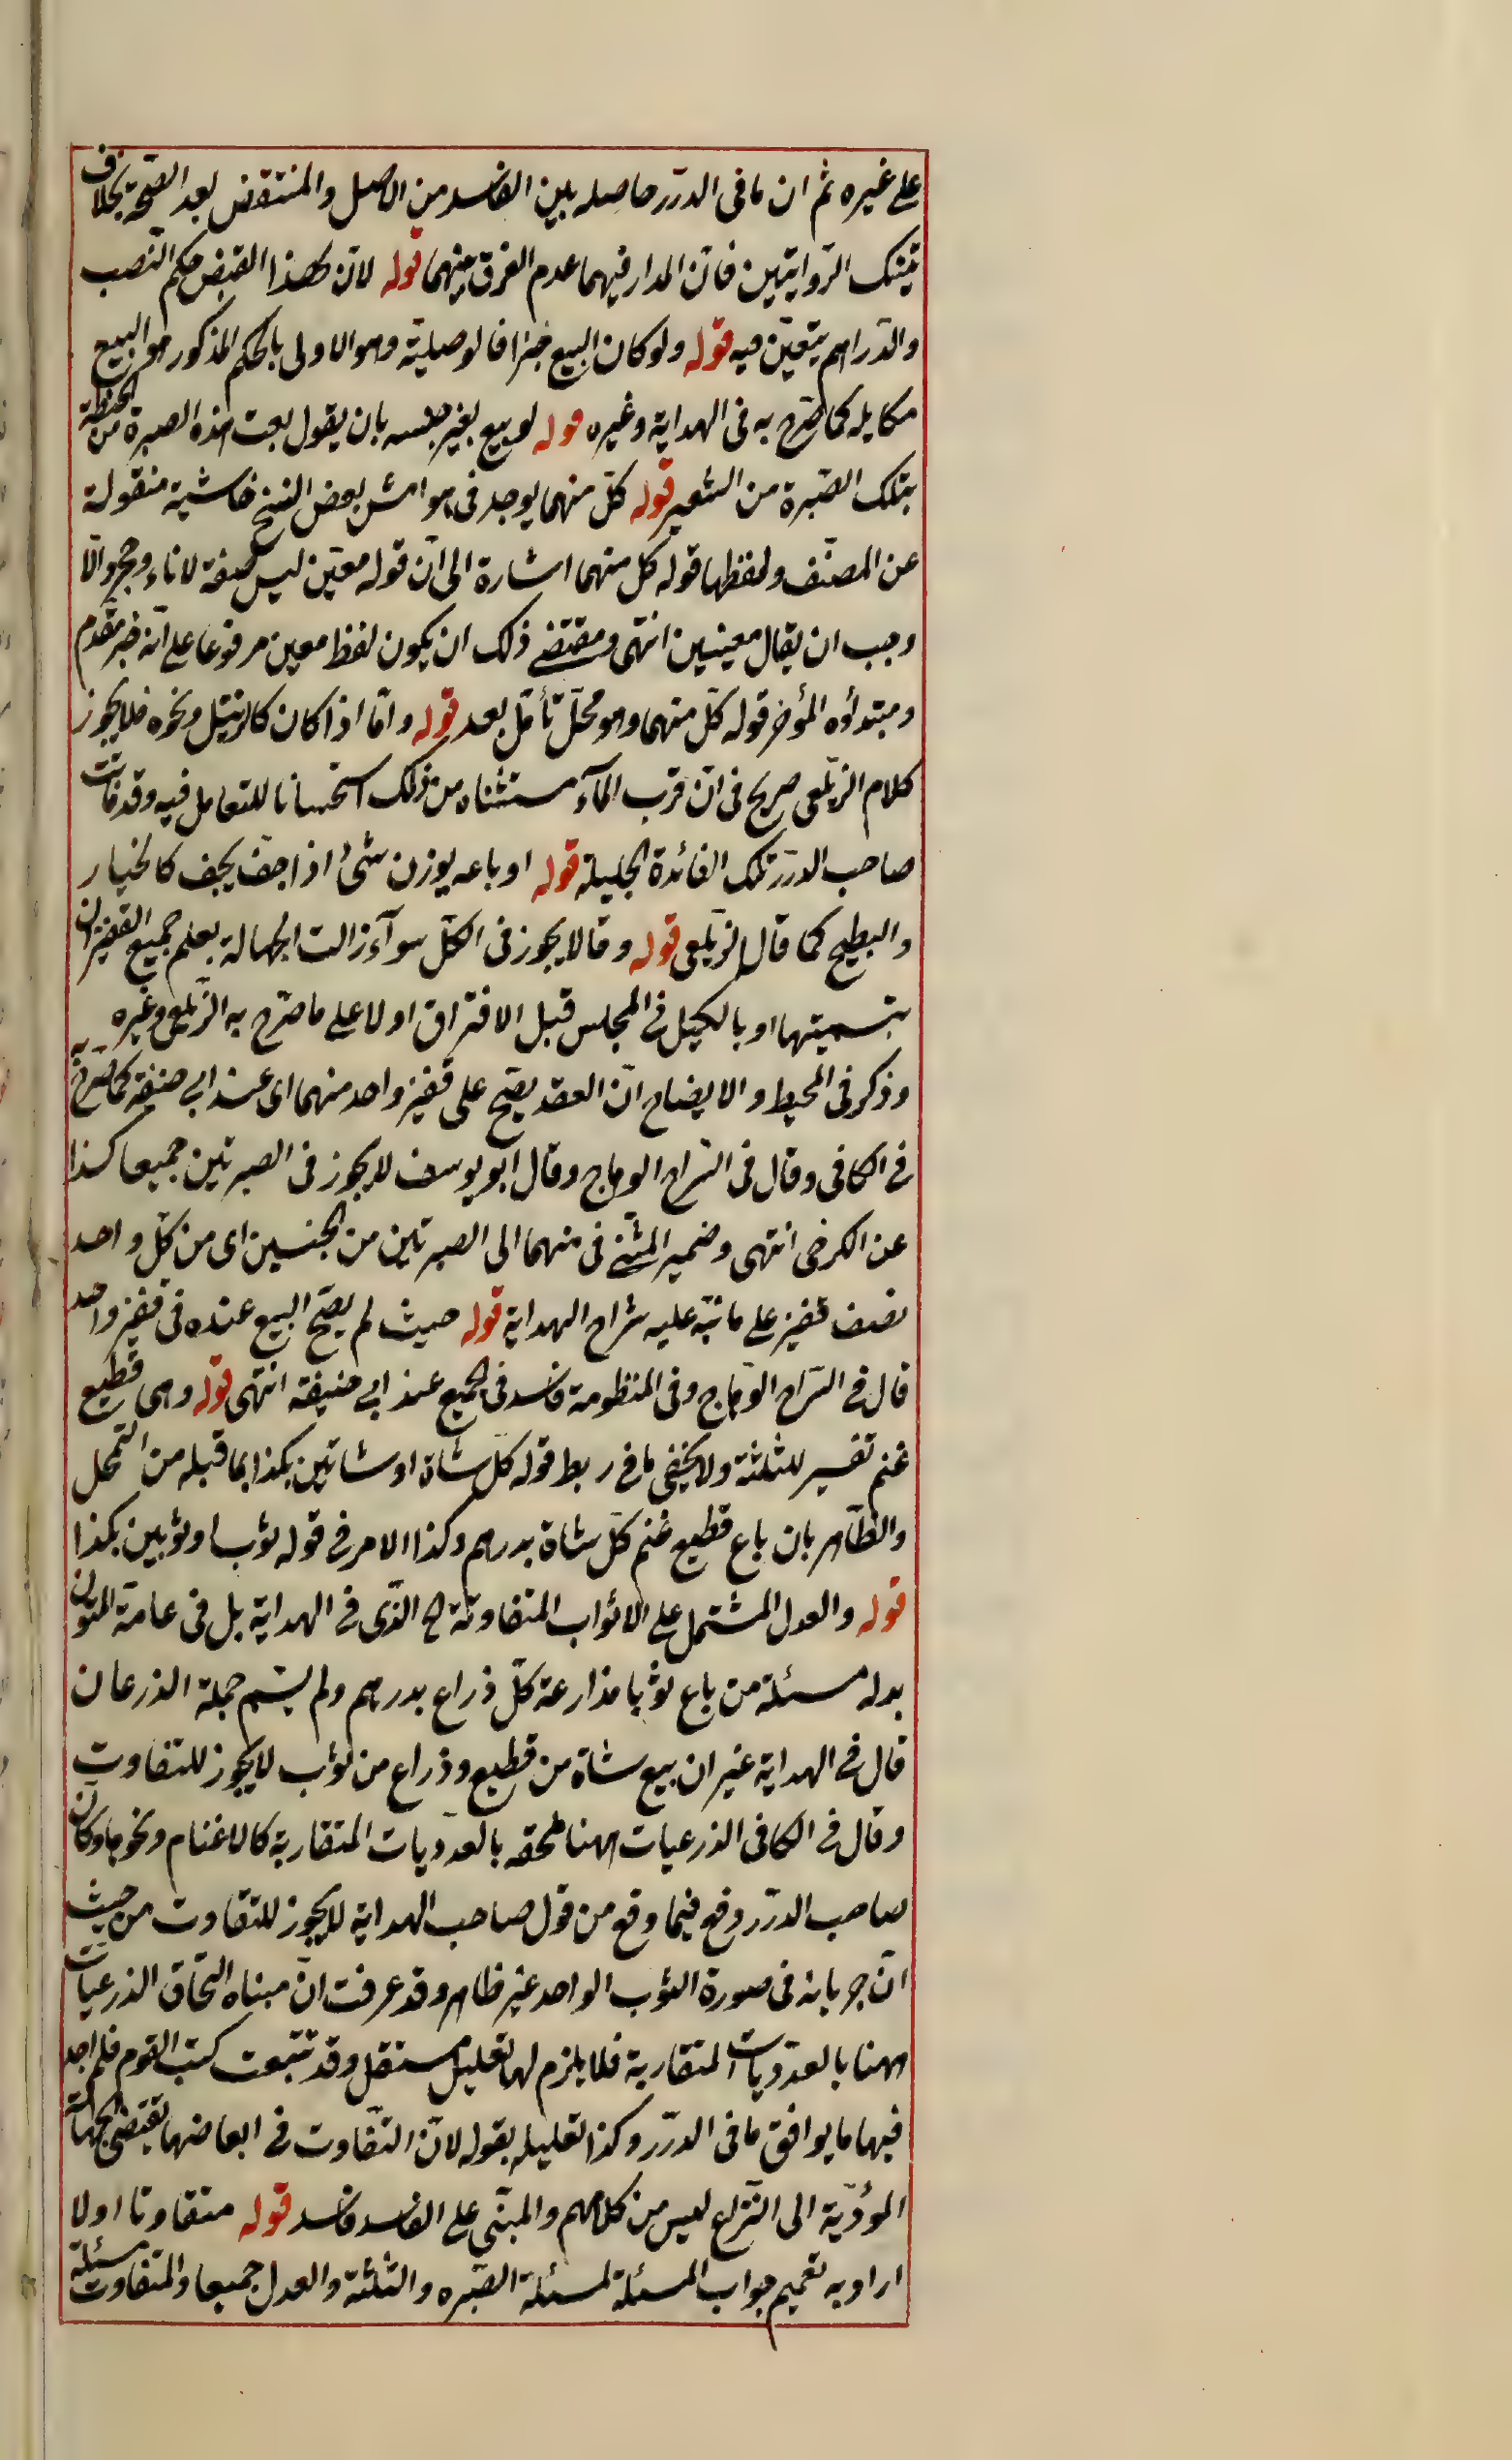 على غيره ثم ان ما فى الدرر حاصله بين الفاسد من الاصل والمنتقض بعد الصحة بخلاف
تينك الروايتين فان المدار فيهما عدم الفرق بينهما قوله لان لهذا القبض حكم الغصب
والدراهم يتعين فيه قوله ولو كان البيع جزافا لو صلية وهو الاولى بالحكم المذكور هو البيع
مكايله كما صرح به فى الهداية وغيره قوله لو بيع بغير جنسه بان يقول بعت هذه الصبرة من الحنطة
بتلك الصبرة من الشعير قوله كل منهما يوجد فى هوامش بعض النسخ حاشية منقولة
عن المصنف ولفظها قوله كل منهما اشارة الى ان قوله معين ليس صفة لاناء وحجر والا
وجب ان يقال معينين انتهى ومقتضى ذلك ان يكون لفظ معين مرفوعا على انه خبر مقدم
ومبتدأوه المؤخر قوله كل منهما وهو محل تأمل بعد قوله واما اذا كان كالزنبيل ونحوه فلا يجوز
كلام الزيلعى صريح فى ان قرب المآء مستثناه من ذلك استحسانا للتعامل فيه وقد فاتت
صاحب الدرر تلك الفائدة الجليلة قوله او باعه بوزن شئ اذا جف يجف كالخيار
والبطيخ كما قال الزيلعى قوله وقالا يجوز فى الكل سوآء زالت الجهالة بعلم جميع القفزان
بتسميتها او بالكيل فى المجلس قبل الافتراق اولا على ما صرح به الزيلعى وغيره
وذكر فى المحيط والايضاح ان العقد يصح على قفيز واحد منهما اى عند ابى حنيفة كما صرح به
فى الكافى وقال فى السراج الوهاج وقال ابو يوسف لا يجوز فى الصبرتين جميعا كذا
عن الكرخى انتهى وضمير المثنى فى منهما الى الصبرتين من الجنسين اى من كل واحد
نصف قفيز على ما نبه عليه شراح الهداية قوله حيث لم يصح البيع عنده فى قفيز واحد
قال فى السراج الوهاج وفى المنظومة فاسد فى الجميع عند ابى حنيفة انتهى قوله وهى قطيع
غنم تفسير للثلثة ولا يخفى ما فى ربط قوله كل شاة او شاتين بكذا بما قبله من التمحل
والظاهر بان باع قطيع غنم كل شاة بدرهم وكذا الامر فى قوله ثوب او ثوبين بكذا
قوله والعدل المشتمل على الاثواب المتفاوتة الخ الذى فى الهداية بل فى عامة المتون
بدله مسئلة من باع ثوبا مذارعة كل ذراع بدرهم ولم يسم جملة الذرعان
قال فى الهداية غير ان بيع شاة من قطيع وذراع من ثوب لا يجوز للتفاوت
وقال فى الكافى الذرعيات ههنا ملحقه بالعدديات المتقاربة كالاغنام ونحوها وكان
صاحب الدرر وقع فيما وقع من قول صاحب الهداية لا يجوز للتفاوت من حيث
ان جريانه فى صورة الثوب الواحد غير ظاهر وقد عرفت ان مبناه التحاق الذرعيات
ههنا بالعدديات المتقاربة فلا يلزم لها تعليل مستقل وقد تتبعت كتب القوم فلم اجد
فيها ما يوافق ما فى الدرر وكذا تعليله بقوله لان التفاوت فى ابعاضها يقتضى الجهالة
المؤدية الى النزاع ليس من كلامهم والمبنى على الفاسد فاسد قوله متفاوتا اولا
اراد به تعميم جواب المسئلة لمسئلة الصبره والثلثة والعدل جميعا والمتفاوت مسئلة